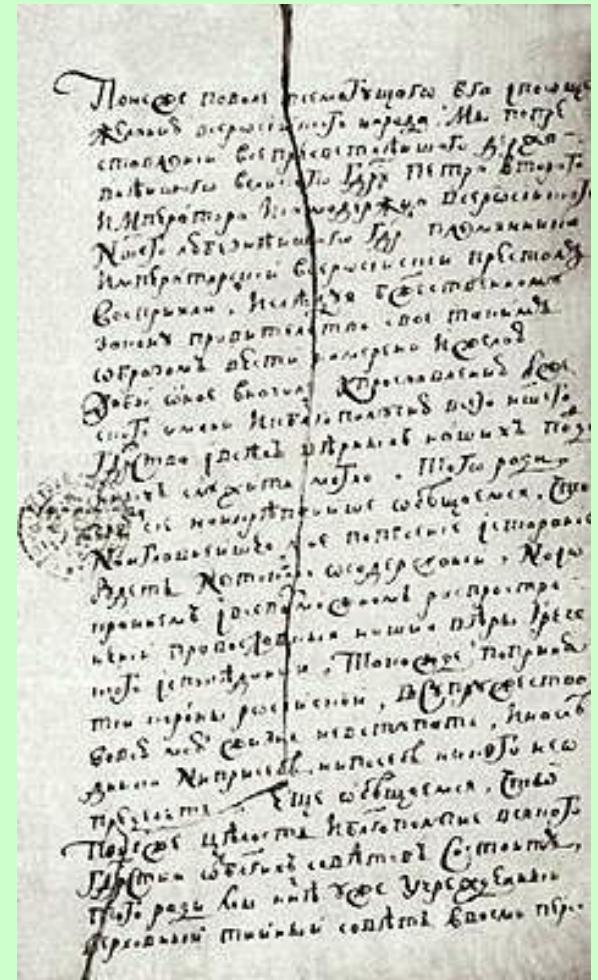 Понеже по воле всемогущаго Бга и по обще
желанию всероссійского народа. Мы по пре
ставлении всепресветлѣйшаго держав-
нѣйшаго великого Гдря Петра Втораго
Императора и самодержца Всероссійского
Нашего любезнѣйшаго Гдря племянника
Императорский всеросийский престолъ
восприяли, и следуя божественному
закону правителство свое такимъ
образомъ вести намерена и желаю
Дабы оное вначале к прославлению Бож
ского имени и к благополучию всего нашего
Гдрства и всѣхъ вѣрныхъ нашихъ подда
ныхъ служить могло. Того ради,
чрез сие наикрѣпчайше обѣщаемся, что
Наиглавнейшее мое попечение и старание
будетъ не токмо о содержании, но и о
крайнемъ и всевозможномъ распростра
нении православныя нашия вѣры Грече
ского исповѣдания, Такожде по приня
тии короны росийской, в супружество
во всю мою жизнь не вступать, и наслѣ
дника ни при себѣ ни по себѣ никого не о
пределять. Еще обещаемся, что
Понеже цѣлость и благополучие всякого
Гдрства от благихъ совѣтовъ состоитъ,
того ради мы ннѣ уже учрежденный
верховный тайный совѣтъ в восми пер-